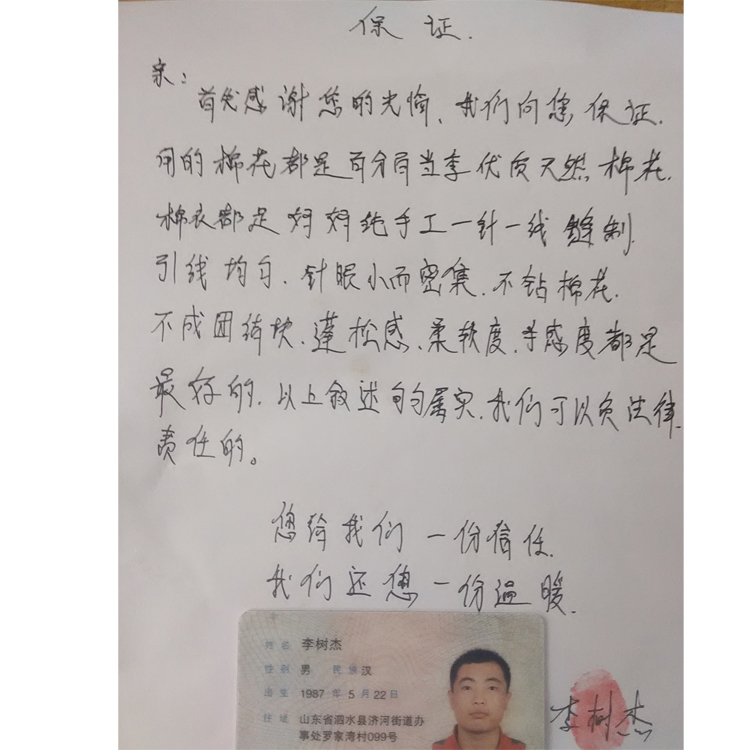 保证.
亲:
首先感谢您的光愉、我们向您保证.
用的棉花都是百分百当季优质天然棉花.
棉衣都是妈妈纯手工一针一线缝制.
引线均匀.针眼小而密集.不钻棉花.
不成团绮块.蓬松感.柔软度.手感度都是
最好的.以上叙述句句属实.我们可以负法律
责任的。
您给我们一份信任.
我们还您一份温暖.
姓名 李树杰
性别 男 民族 汉
出生 1987 年 5 月 22 日
住址 山东省泗水县济河街道办
事处罗家湾村099号
李树杰